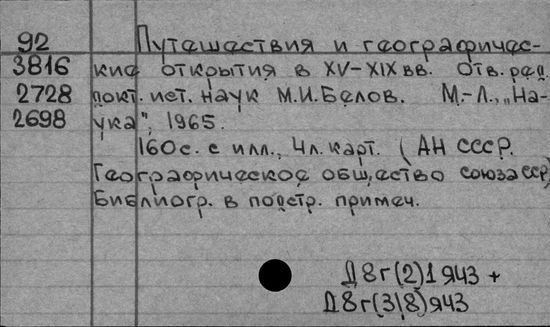 92 Путешествия и географичес-
3816 кие открытия в XV-XIX вв. Отв. ред.
2728 докт. ист. наук М.И.Белов. М.-Л., „На-
2698 ука", 1965.
160с. с илл., 4л. карт. (АН СССР.
Географическое общество союза ССР)
Библиогр. в подстр. примеч.
Д8г(2)1я43 +
Д8г(3/8)я43